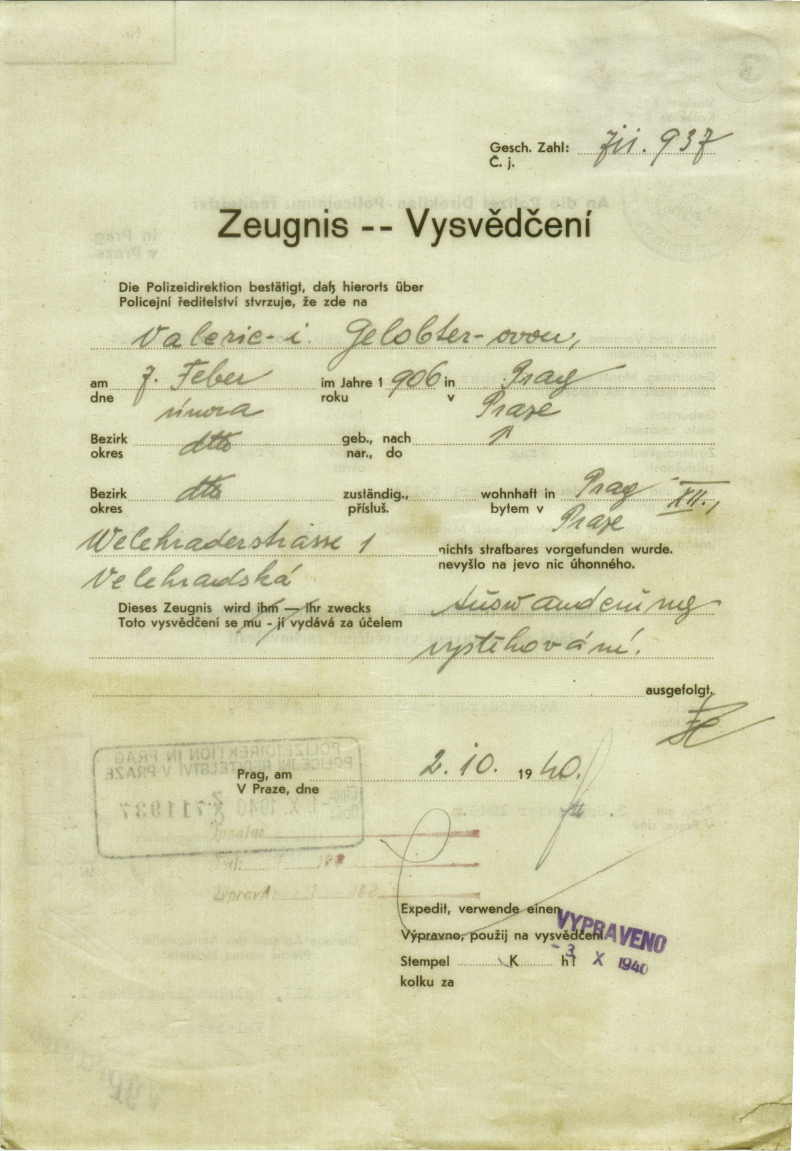 Gesch. Zahl: 711.937
Č. j.
Zeugnis -- Vysvědčení
Die Polizeidirektion bestätigt, daß hierorts über
Policejní ředitelství stvrzuje, že zde na
Valerie-i Gelobter-ovou,
am 7. Feber im Jahre 1 906 in Prag
dne února roku v Praze
Bezirk dtto geb., nach
okres nar., do
Bezirk dtto zuständig., wohnhaft in Prag XII.,
okres přísluš. bytem v Praze
Welehraderstrasse 1 nichts strafbares vorgefunden wurde.
Velehradská nevyšlo na jevo nic úhonného.
Dieses Zeugnis wird ihm — Ihr zwecks Auswanderung
Toto vysvědčení se mu - jí vydává za účelem
vystěhování.
ausgefolgt.
POLIZEIDIREKTION IN PRAG
POLICEJNÍ ŘEDITELSTVÍ V PRAZE
711937
Prag, am 2. 10. 19 40.
V Praze, dne
Expedit, verwende einen
Výpravno, použij na vysvědčení
VYPRAVENO
Stempel K h!
-3 X 1940
kolku za